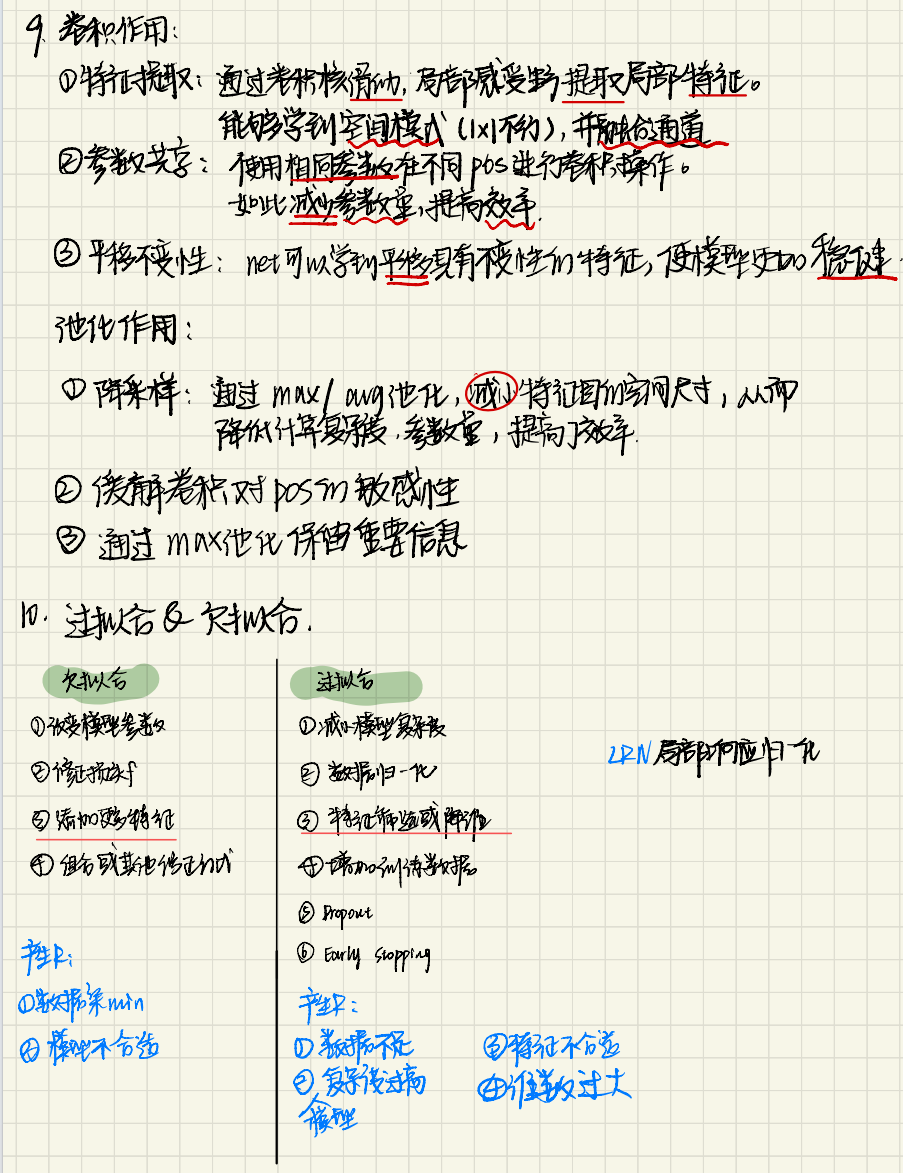 9. 卷积作用：
①特征提取：通过卷积核滑动，局部感受野提取局部特征。
能够学到空间模式（1x1不行），并融合通道
②参数共享：使用相同参数在不同pos进行卷积操作。
如此减少参数量，提高效率.
③平移不变性：net可以学到平移具有不变性的特征，使模型更加稳健.
池化作用：
①降采样：通过max/avg池化，减小特征图的空间尺寸，从而
降低计算复杂度，参数量，提高了效率.
②缓解卷积对pos的敏感性
③通过max池化保留重要信息
10. 过拟合 & 欠拟合.
欠拟合
①改变模型参数
②修正损失f
③添加更多特征
④组合或其他修正方式
产生R：
①数据集min
②模型不合适
过拟合
①减小模型复杂度
②数据归一化
③特征筛选或降维
④增加训练数据
⑤Dropout
⑥Early stopping
产生R：
①数据不足
②复杂度过高
模型
③特征不合适
④维数过大
LRN 局部响应归一化